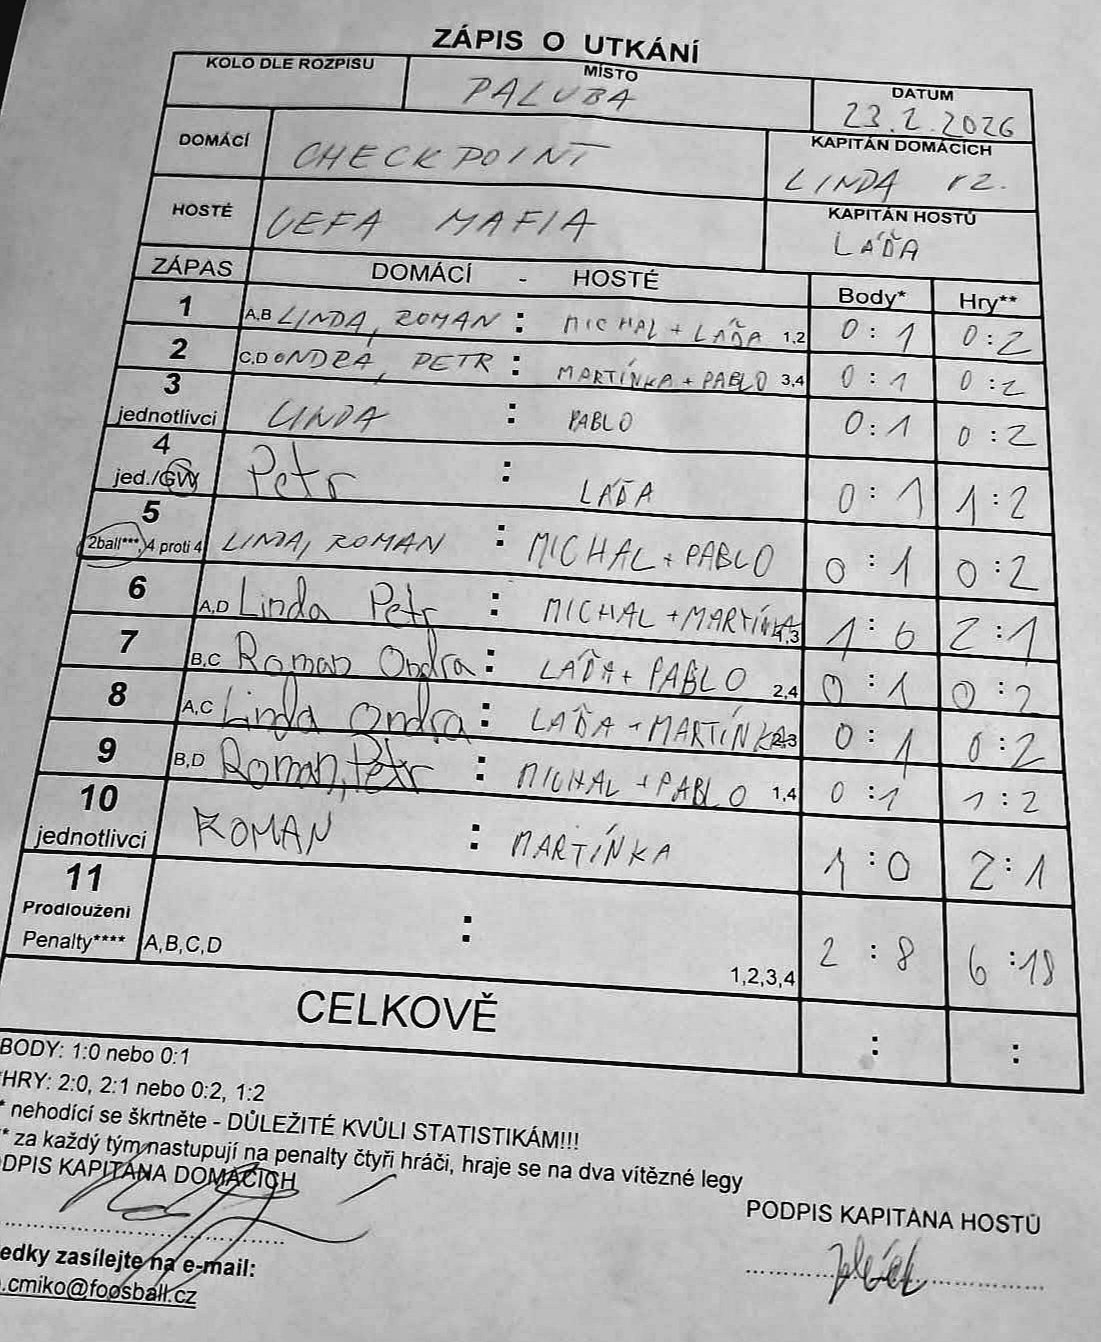 ZÁPIS O UTKÁNÍ
KOLO DLE ROZPISU
MÍSTO
PALUBA
DATUM
23.2.2026
DOMÁCÍ
CHECKPOINT
KAPITÁN DOMÁCÍCH
LINDA rz.
HOSTÉ
UEFA MAFIA
KAPITÁN HOSTŮ
LÁĎA
ZÁPAS DOMÁCÍ - HOSTÉ Body* Hry**
1 A,B LINDA, ROMAN : MICHAL + LÁĎA 1,2 0 : 1 0 : 2
2 C,D ONDRA, PETR : MARTÍNKA + PABLO 3,4 0 : 1 0 : 2
3 jednotlivci LINDA : PABLO 0 : 1 0 : 2
4 jed./GW Petr : LÁĎA 0 : 1 1 : 2
5 2ball***, 4 proti 4 LINDA, ROMAN : MICHAL + PABLO 0 : 1 0 : 2
6 A,D Linda Petr : MICHAL + MARTÍNKA 1,3 1 : 0 2 : 1
7 B,C Roman Ondra : LÁĎA + PABLO 2,4 0 : 1 0 : 2
8 A,C Linda Ondra : LÁĎA + MARTÍNKA 2,3 0 : 1 0 : 2
9 B,D Roman, Petr : MICHAL + PABLO 1,4 0 : 1 1 : 2
10 jednotlivci ROMAN : MARTÍNKA 1 : 0 2 : 1
11 Prodloužení Penalty**** A,B,C,D : 1,2,3,4 2 : 8 6 : 18
CELKOVĚ : :
BODY: 1:0 nebo 0:1
*HRY: 2:0, 2:1 nebo 0:2, 1:2
* nehodící se škrtněte - DŮLEŽITÉ KVŮLI STATISTIKÁM!!!
** za každý tým nastupují na penalty čtyři hráči, hraje se na dva vítězné legy
DPIS KAPITÁNA DOMÁCÍCH
PODPIS KAPITÁNA HOSTŮ
edky zasílejte na e-mail:
.cmiko@foosball.cz